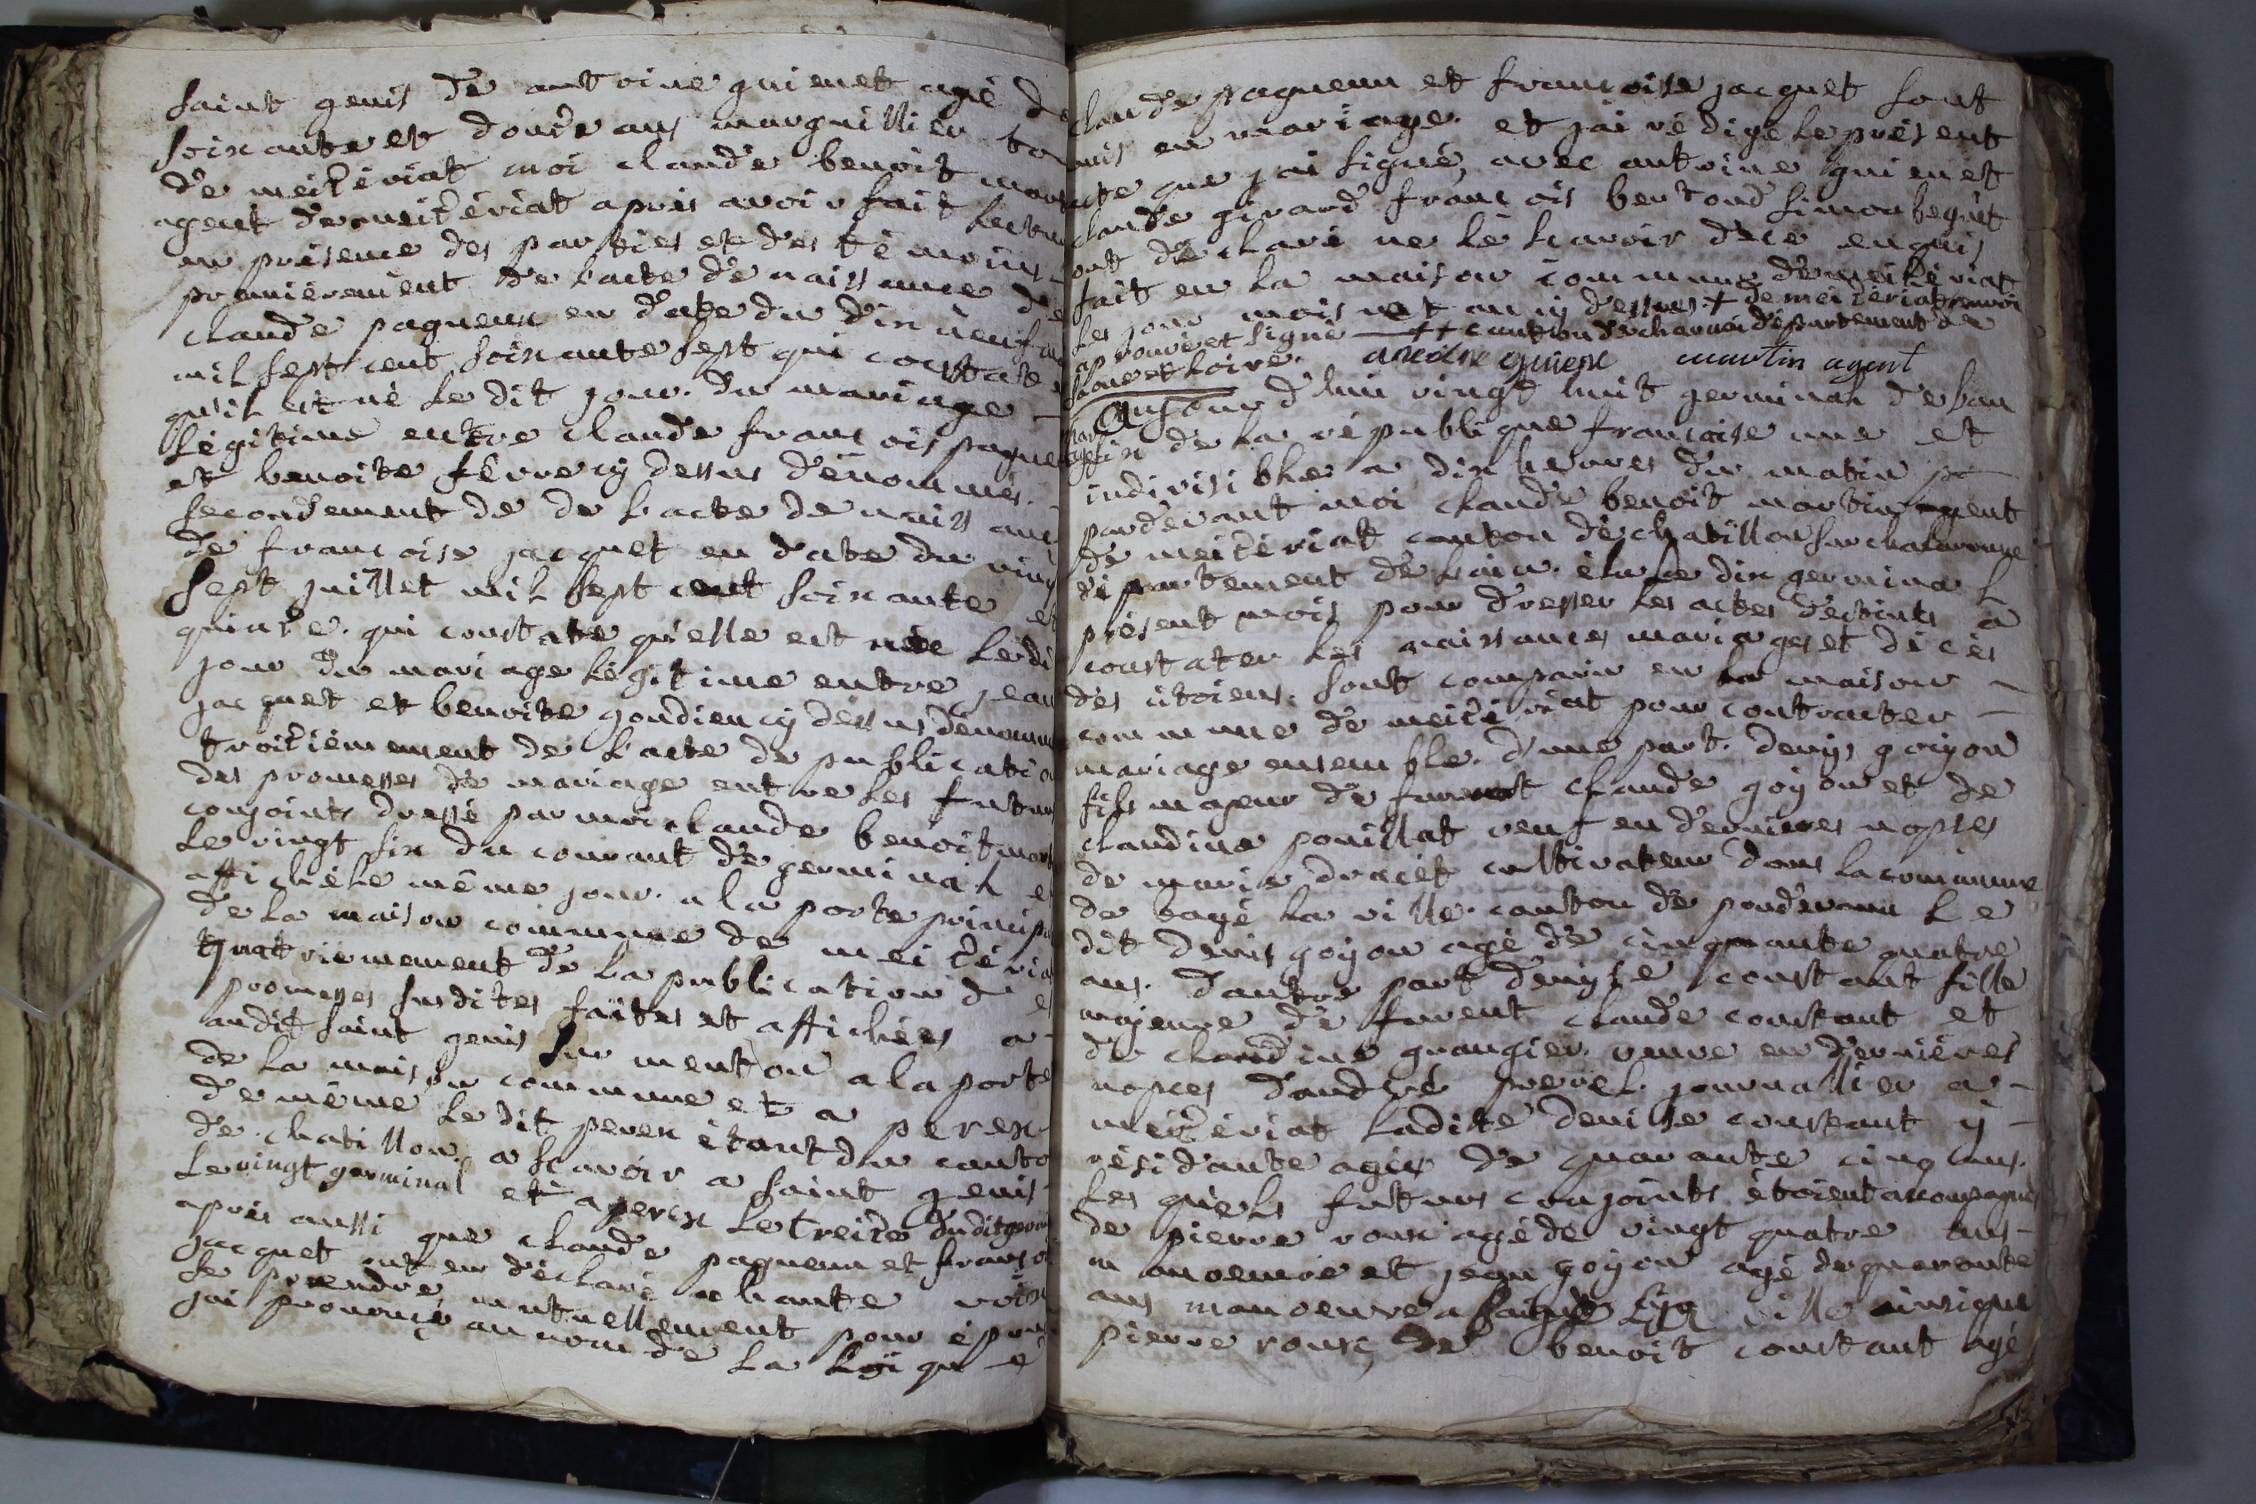 saint genis de antoine guienet agé de
soixante et douze ans marguillier to
de meizériat moi claude benoit mart
agent de meizériat après avoir fait lectu
en présence des parties et des témoins
premièrement de l'acte de naissance de
claude paqueux en date du dix neuf
mil sept cent soixante sept qui constate
qu'il est né le dit jour du mariage
légitime entre claude francois paque
et benoite ferre cy dessus dénommés.
secondement de de l'acte de naissanc
de francoise jacquet en date du ving
sept juillet mil sept cent soixante et
quinze. qui constate qu'elle est née ledi
jour du mariage légitime entre jean
jacquet et benoite gondien cy dessus dénomm
troizièmement de l'acte de publicatio
des promesses de mariage entre les futurs
conjoints dressé par moi claude benoit mart
le vingt six du courant de germinal et
affiché le même jour. a la porte princip
de la maison commune de meizéria
quatriemement de la publication de
promesses susdites faites et affichées a
audit saint genis sur menton a la porte
de la maison commune et a perex
de même le dit perex étant du canto
de chatillon. a scavoir a saint genis
le vingt germinal et a perex le treize dudit
après aussi que claude paqueux et franco
jacquet ont eu déclaré a haute voix
se prendre mutuellement pour épou
jai prononcé au nom de la loi que
claude paqueux et francoise jacquet sont
unis en mariage. et jai rédigé le présent
acte que jai signé, avec antoine guienet
claude girard francois bertoud simon beguet
ont déclaré ne le scavoir de ce enquis
fait en la maison commune de meizériat
les jour mois et an cy dessus. + de meizeriat renvoi
aprouvé et signé ++ canton de charnai département de
saone et loire. antoine guienet martin agent
aujourd'hui vingt huit germinal de l'an
six de la république francaise une et
indivisible a dix heures du matin
pardevant moi claude benoit martin agent
de meizériat canton de chatillon sur chalaronne
département de l'ain. élu le dix germinal
présent mois pour dresser les actes destinés a
constater les naissances mariages et décès
des citoiens. sont comparu en la maison
commune de meizériat pour contracter
mariage ensemble. d'une part. denys goyon
fils majeur de furent claude goyon et de
claudine pouillat veuf en dernieres nopses
de marie cultivateur dans la commune
de bagé la ville. canton de pondevaux le
dit denis goyon agé de cinquante quatre
ans. d'autre part denyse constant fille
majeure de furent claude constant et
de claudine grangier. veuve en dernières
nopces d'andré perel journallier a
meizériat ladite denise constant y
résidante agée de quarante cinq ans.
les quels futurs conjoints étoient acompagnés
de pierre roux agé de vingt quatre ans
manoeuvre et jean goyon agé de quarante
ans manoeuvre a ville ainsi que
pierre roux, de benoit constant agé